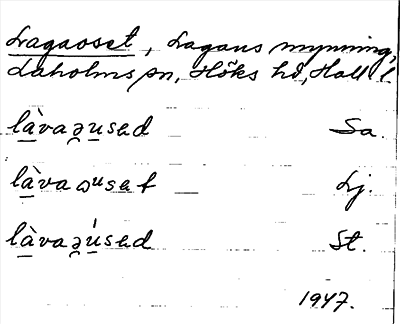 Lagaoset, Lagans mynning,
Laholms sn, Höks hd, Hall. l.
là̱vaə̯u̱səd Sa.
là̱vaωᵘsət Lj.
là̱vaə̯ú̱səd St.
1947.